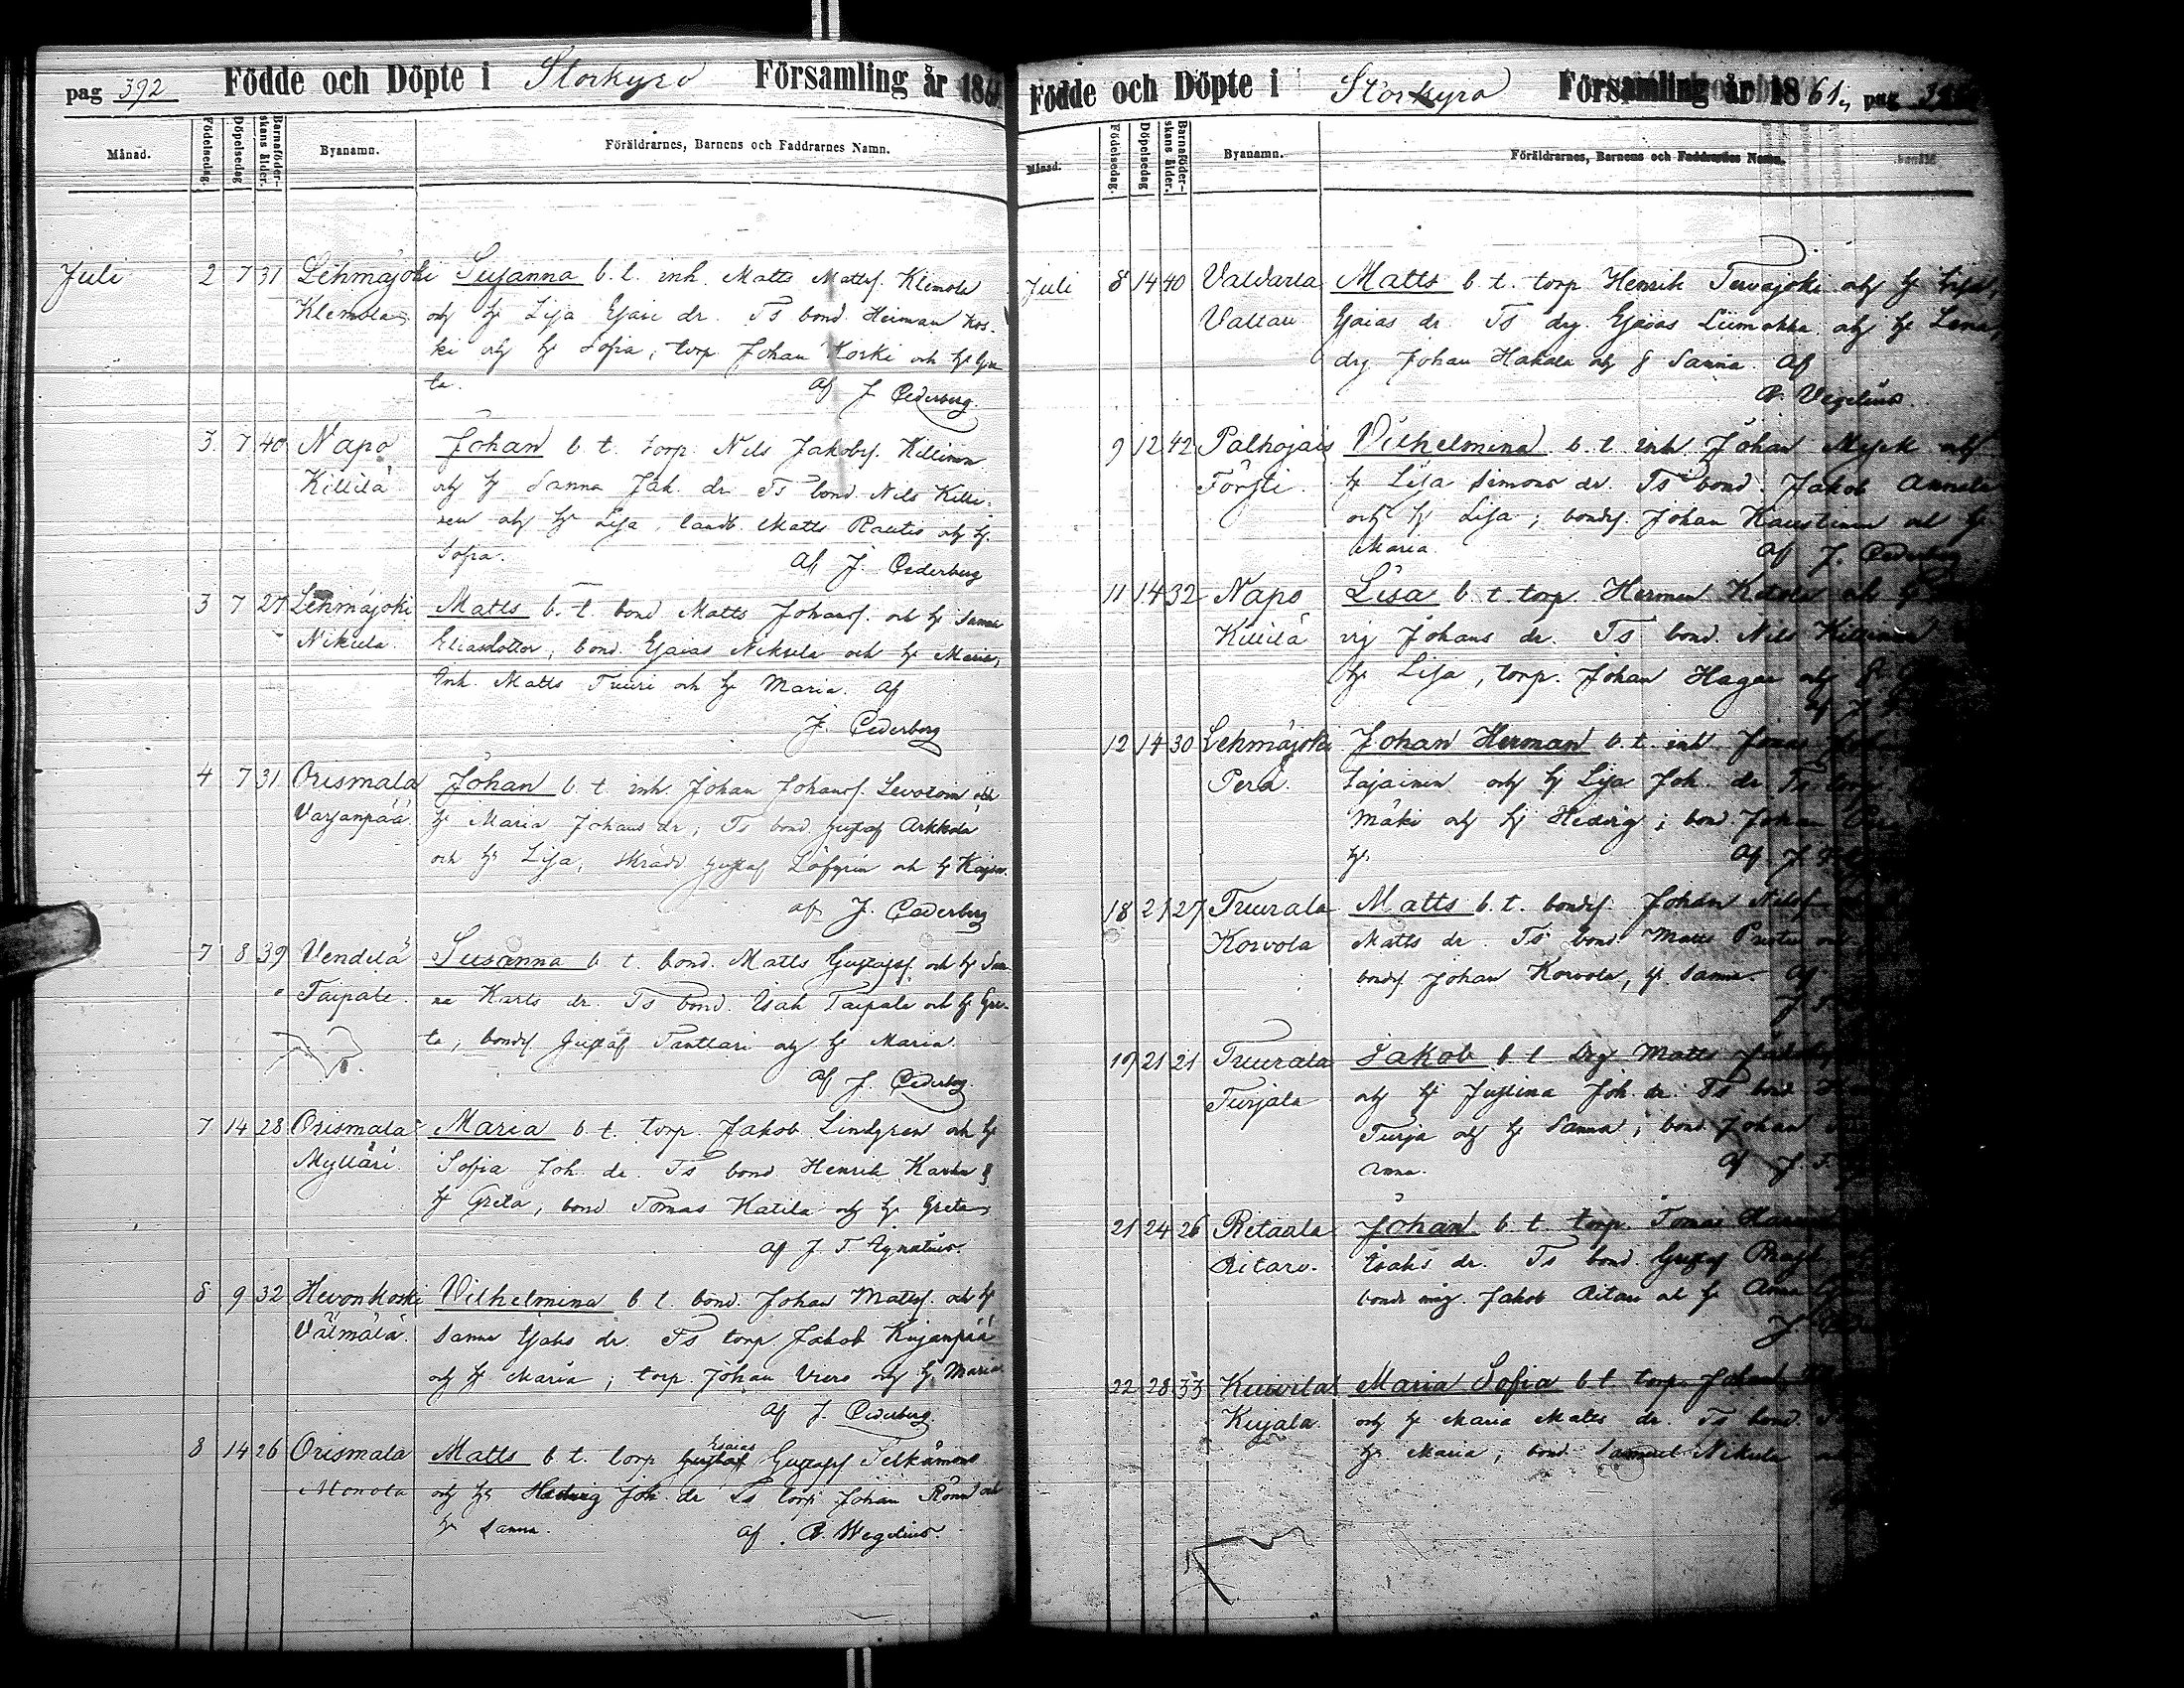 pag 392 Födde och Döpte i Storkyro Församling år 1861
Månad. Födelsedag. Döpelsedag Barnaföder-skans ålder. Byanamn. Föräldrarnes, Barnens och Faddrarnes Namn.
Juli 2 7 31 Lehmäjoki Susanna b. t. inh. Matts Mattsf. Klemola
Klemola och h. Lisa Esaie dr. Ts bond. Heiman Kos-
ki och h Sofia, torp Johan Koski och h Gre
ta. af J. Cederberg
3. 7 40 Napo Johan b. t. torp. Nils Jakobsf. Killinen
Killilä och h Sanna Jak. dr. Ts bond. Nils Killi-
nen och h Lisa, landb. Matts Rautis och h.
Sofia. af J. Cederberg
3 7 27 Lehmäjoki Matts b. t. bond Matts Johansf. och h Sanna
Nikula. Eliasdotter, bond. Esaias Nikula och h Maria,
Inh. Matts Tuuri och h Maria. af
J. Cederberg
4 7 31 Orismala Johan b. t. inh. Johan Johansf. och
Varjanpää h Maria Johans dr; Ts bond. Gustaf Arkkola
och h Lisa, skrädd Gustaf Löfgren och h Kajsa.
af J. Cederberg
7 8 39 Vendilä Susanna b t. bond. Matts Gustafsf. och h San
Taipale. na Karls dr. Ts bond. Isak Taipale och h Gre-
ta, bondf. Gustaf Panttari och h Maria.
af J. Cederberg.
7 14 28 Orismala Maria b. t. torp. Jakob Lindgren och h
Myllari. Sofia Joh. dr. Ts bond Henrik Karhu &
h Greta, bond Tomas Katila och h Greta
af J. T. Ignatius.
8 9 32 Hevonkoski Vilhelmina b. t. bond. Johan Mattsf. och h
Välmälä. Sanna dr. Ts torp Jakob Kujanpää
och h Maria; torp. Johan och h Maria
af J. Cederberg.
8 14 26 Orismala Matts b t. torp Esaias Gustafsf
Monola och h Hedvig Joh. dr Ts torp Johan Rönn och
h Sanna. af R. Wegelius.
Födde och Döpte i Storkyro Församling år 1861, pag
Månad. Födelsedag. Döpelsedag Barnaföder-skans ålder. Byanamn. Föräldrarnes, Barnens och Faddrarnes Namn.
Juli 8 14 40 Valdarla Matts b. t. torp Henrik Tervajoki och h Lisa,
Valtari Esaias dr. Ts drg. Esaias Liimakka och h Lena,
drg Johan Hakala och h Sanna. af
R. Vegelius.
9 12 42 Palhojais Vilhelmina b. t. inh Johan och
Försti. h Lisa Simons dr. Ts bond. Jakob Annila
och h Lisa; bondf. Johan Kaustinen och h
Maria. af J. Cederberg
11 14 32 Napo Lisa b. t. torp. Herman Ketola och
Killilä vig Johans dr. Ts bond. Nils Killinen
h Lisa, torp. Johan Hagar och
12 14 30 Lehmäjoki Johan Herman b. t. inh. Jonas
Perä. Sajainen och h Lisa Joh. dr. Ts torp
Mäki och h Hedvig; bond Johan
h. af J.
18 21 27 Tuurala Matts b. t. bondf. Johan Nilsf
Korvola Matts dr. Ts bond. Matts
bondf Johan Korvola, h Sanna. af
J.
19 21 21 Tuurala Jakob b. t Drg Matts
Turjala och h Justina Joh. dr. Ts bond
Turja och h Sanna; bond. Johan
Anna. af J. T.
21 24 26 Ritaala Johan b. t. torp. Tomas
Ritaro. Isaks dr. Ts bond. Gustaf
bonde mg. Jakob Ritari och h Anna
J.
22 28 33 Kuivila Maria Sofia b. t. torp. Johan
Kujala och h Maria Matts dr. Ts bond.
h Maria, bond Samuel Nikula